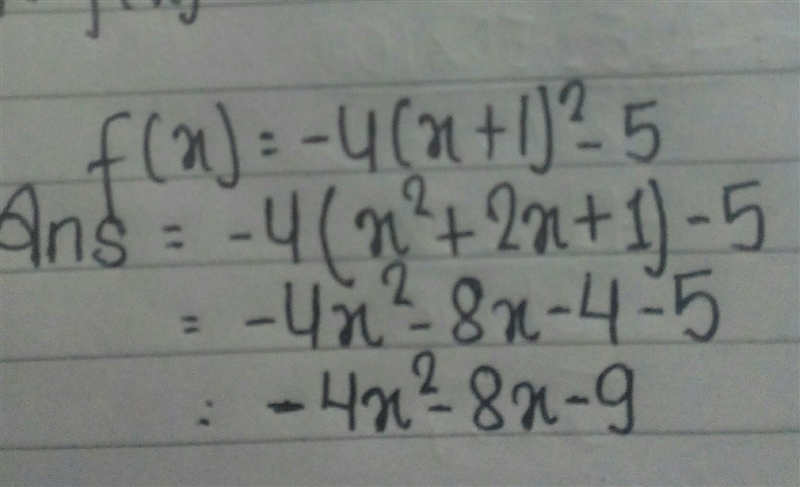 f(x) = -4(x+1)² - 5
Ans = -4(x² + 2x + 1) - 5
= -4x² - 8x - 4 - 5
: -4x² - 8x - 9